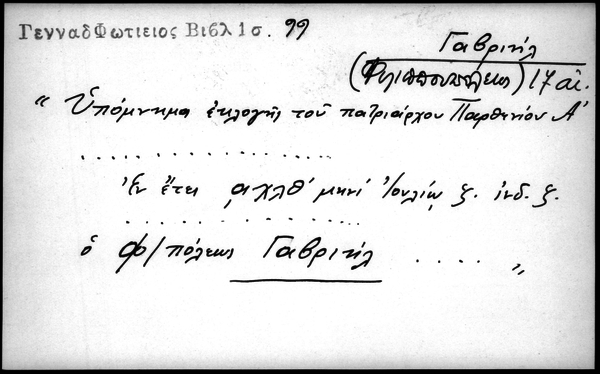 ΓενναδΦωτιειος Βιβλ 1σ. 99
Γαβριήλ
(Φιλιππουπόλεως) 17 αἰ.
" Ὑπόμνημα ἐκλογῆς τοῦ πατριάρχου Παρθενίου Α'
. . . . . . . . . . . . . . . . . .
Ἐν ἔτει ͵αχλθ' μηνί Ἰουλίῳ ζ. ἰνδ. ζ.
. . . . . . . . . . . . . . . . . .
ὁ Φ/πόλεως Γαβριήλ . . . . "